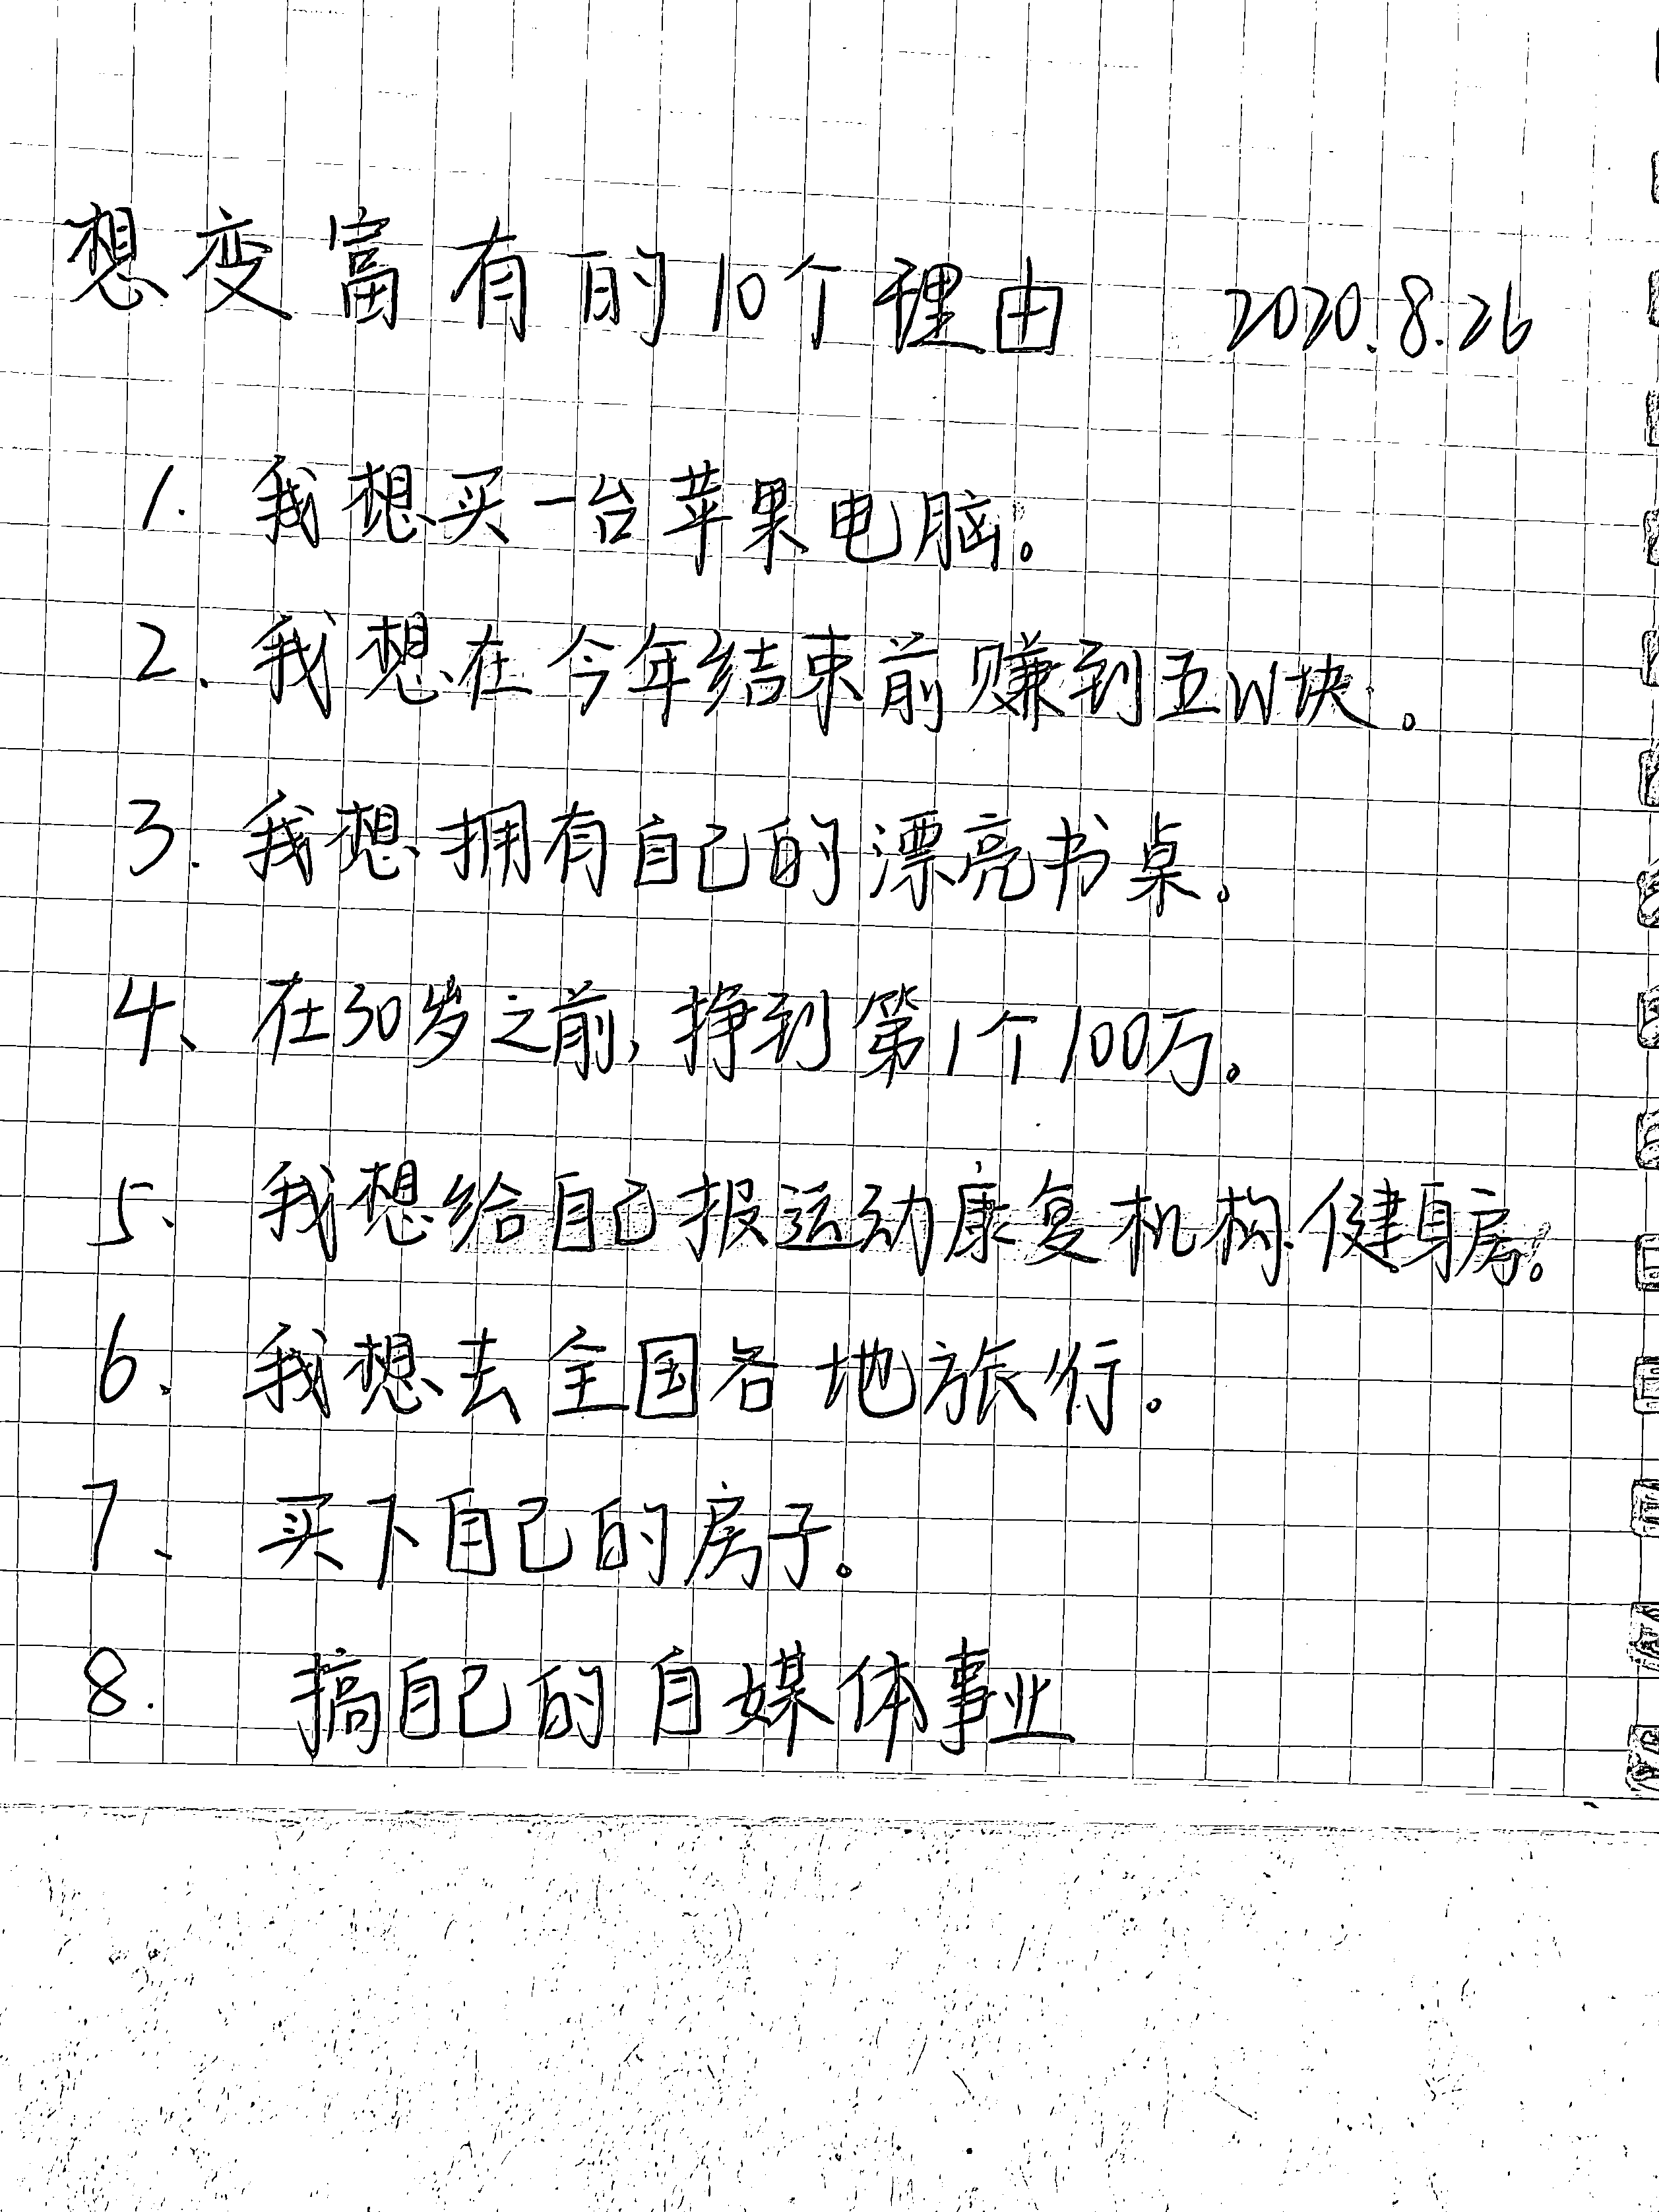 想变富有的10个理由 2020.8.26
1. 我想买一台苹果电脑。
2. 我想在今年结束前赚到五W块。
3. 我想拥有自己的漂亮书桌。
4、在30岁之前,挣到第1个100万。
5、我想给自己报运动康复机构、健身房。
6、我想去全国各地旅行。
7、买下自己的房子。
8. 搞自己的自媒体事业